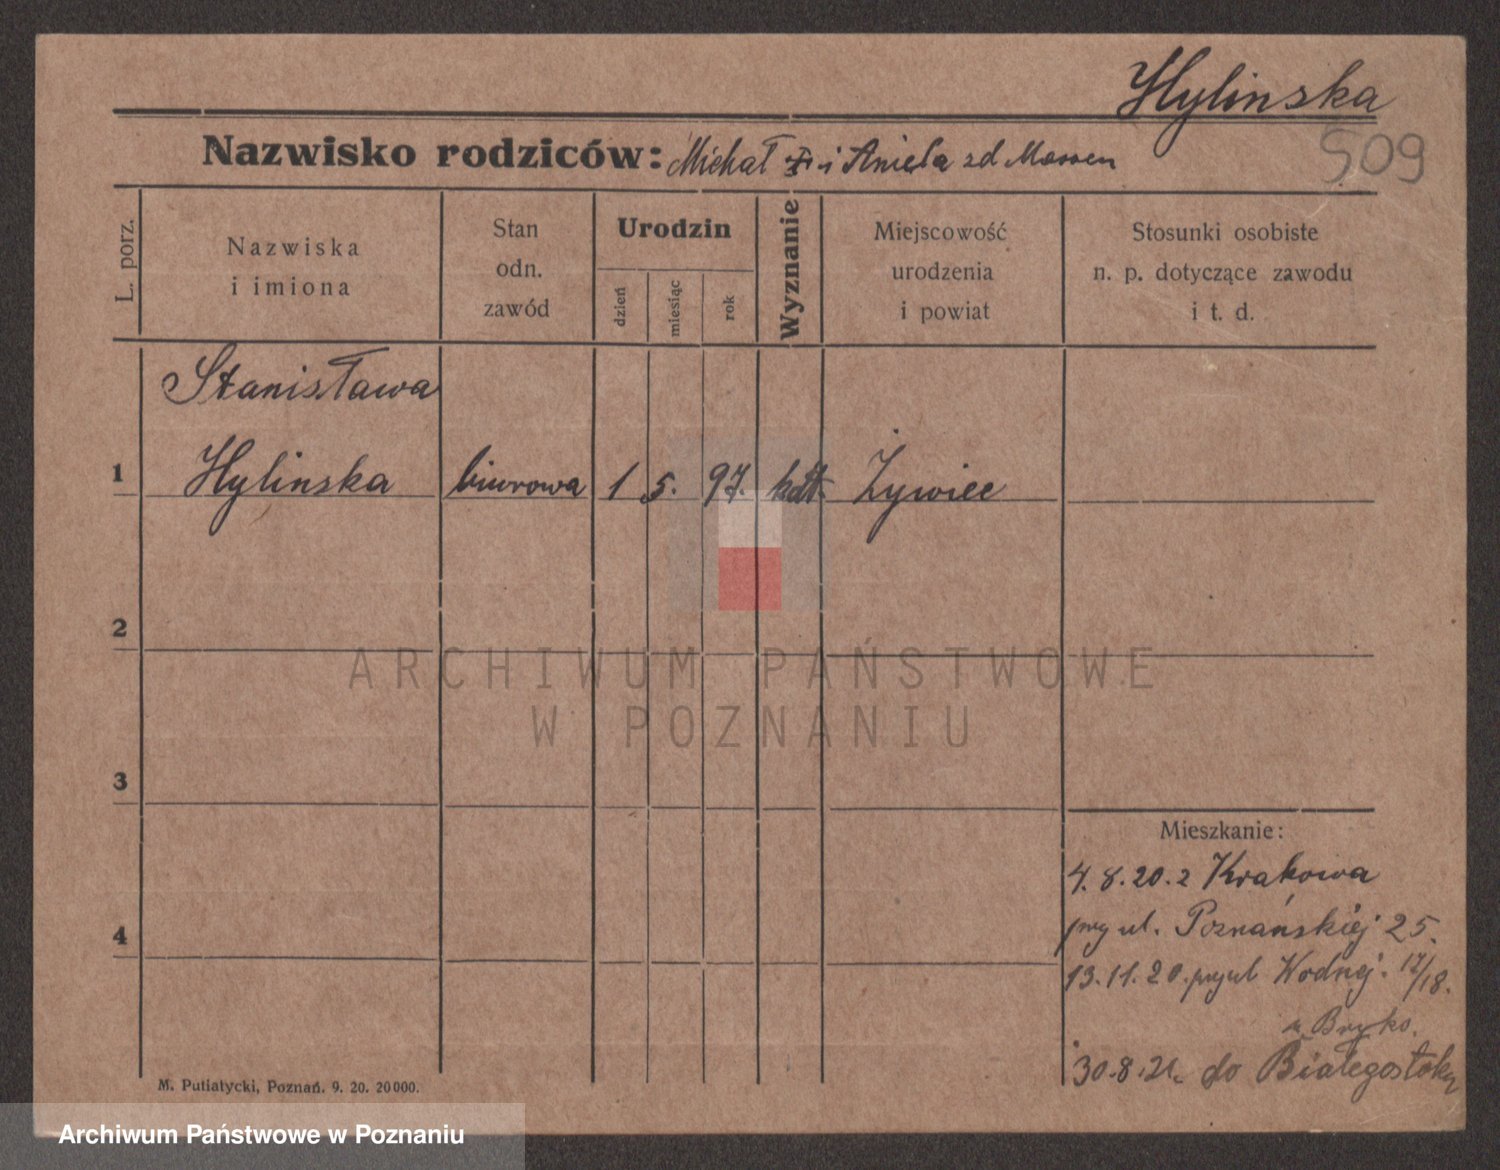 Hylinska
509
Nazwisko rodziców: Michał i Aniela zd Massen
L. porz.
Nazwiska
i imiona
Stan
odn.
zawód
Urodzin
dzień
miesiąc
rok
Wyznanie
Miejscowość
urodzenia
i powiat
Stosunki osobiste
n. p. dotyczące zawodu
i t. d.
Stanisława
1 Hylinska biurowa 1 5. 97. kat. Żywiec
2
ARCHIWUM PAŃSTWOWE
W POZNANIU
3
Mieszkanie:
4.8.20. z Krakowa
4
przy ul. Poznańskiej 25.
13.11.20. przy ul Wodnej. 17/18.
30.8.21. do Białegostoku
M. Putiatycki, Poznań. 9. 20. 20 000.
Archiwum Państwowe w Poznaniu